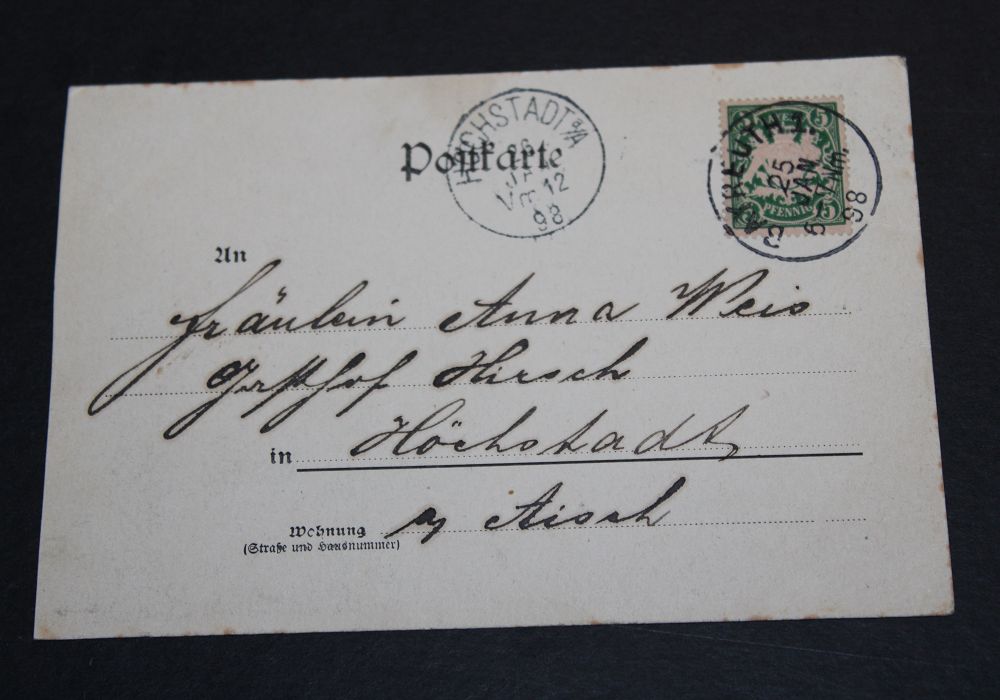 Postkarte
HÖCHSTADT a/A
26
JAN
Vm 12
98
BAYREUTH 1.
25
JAN
5-7 Nm.
98
5
5
PFENNIG
An
Fräulein Anna Weis
Gasthof Hirsch
in Höchstadt
a/ Aisch
Wohnung
(Straße und Hausnummer)